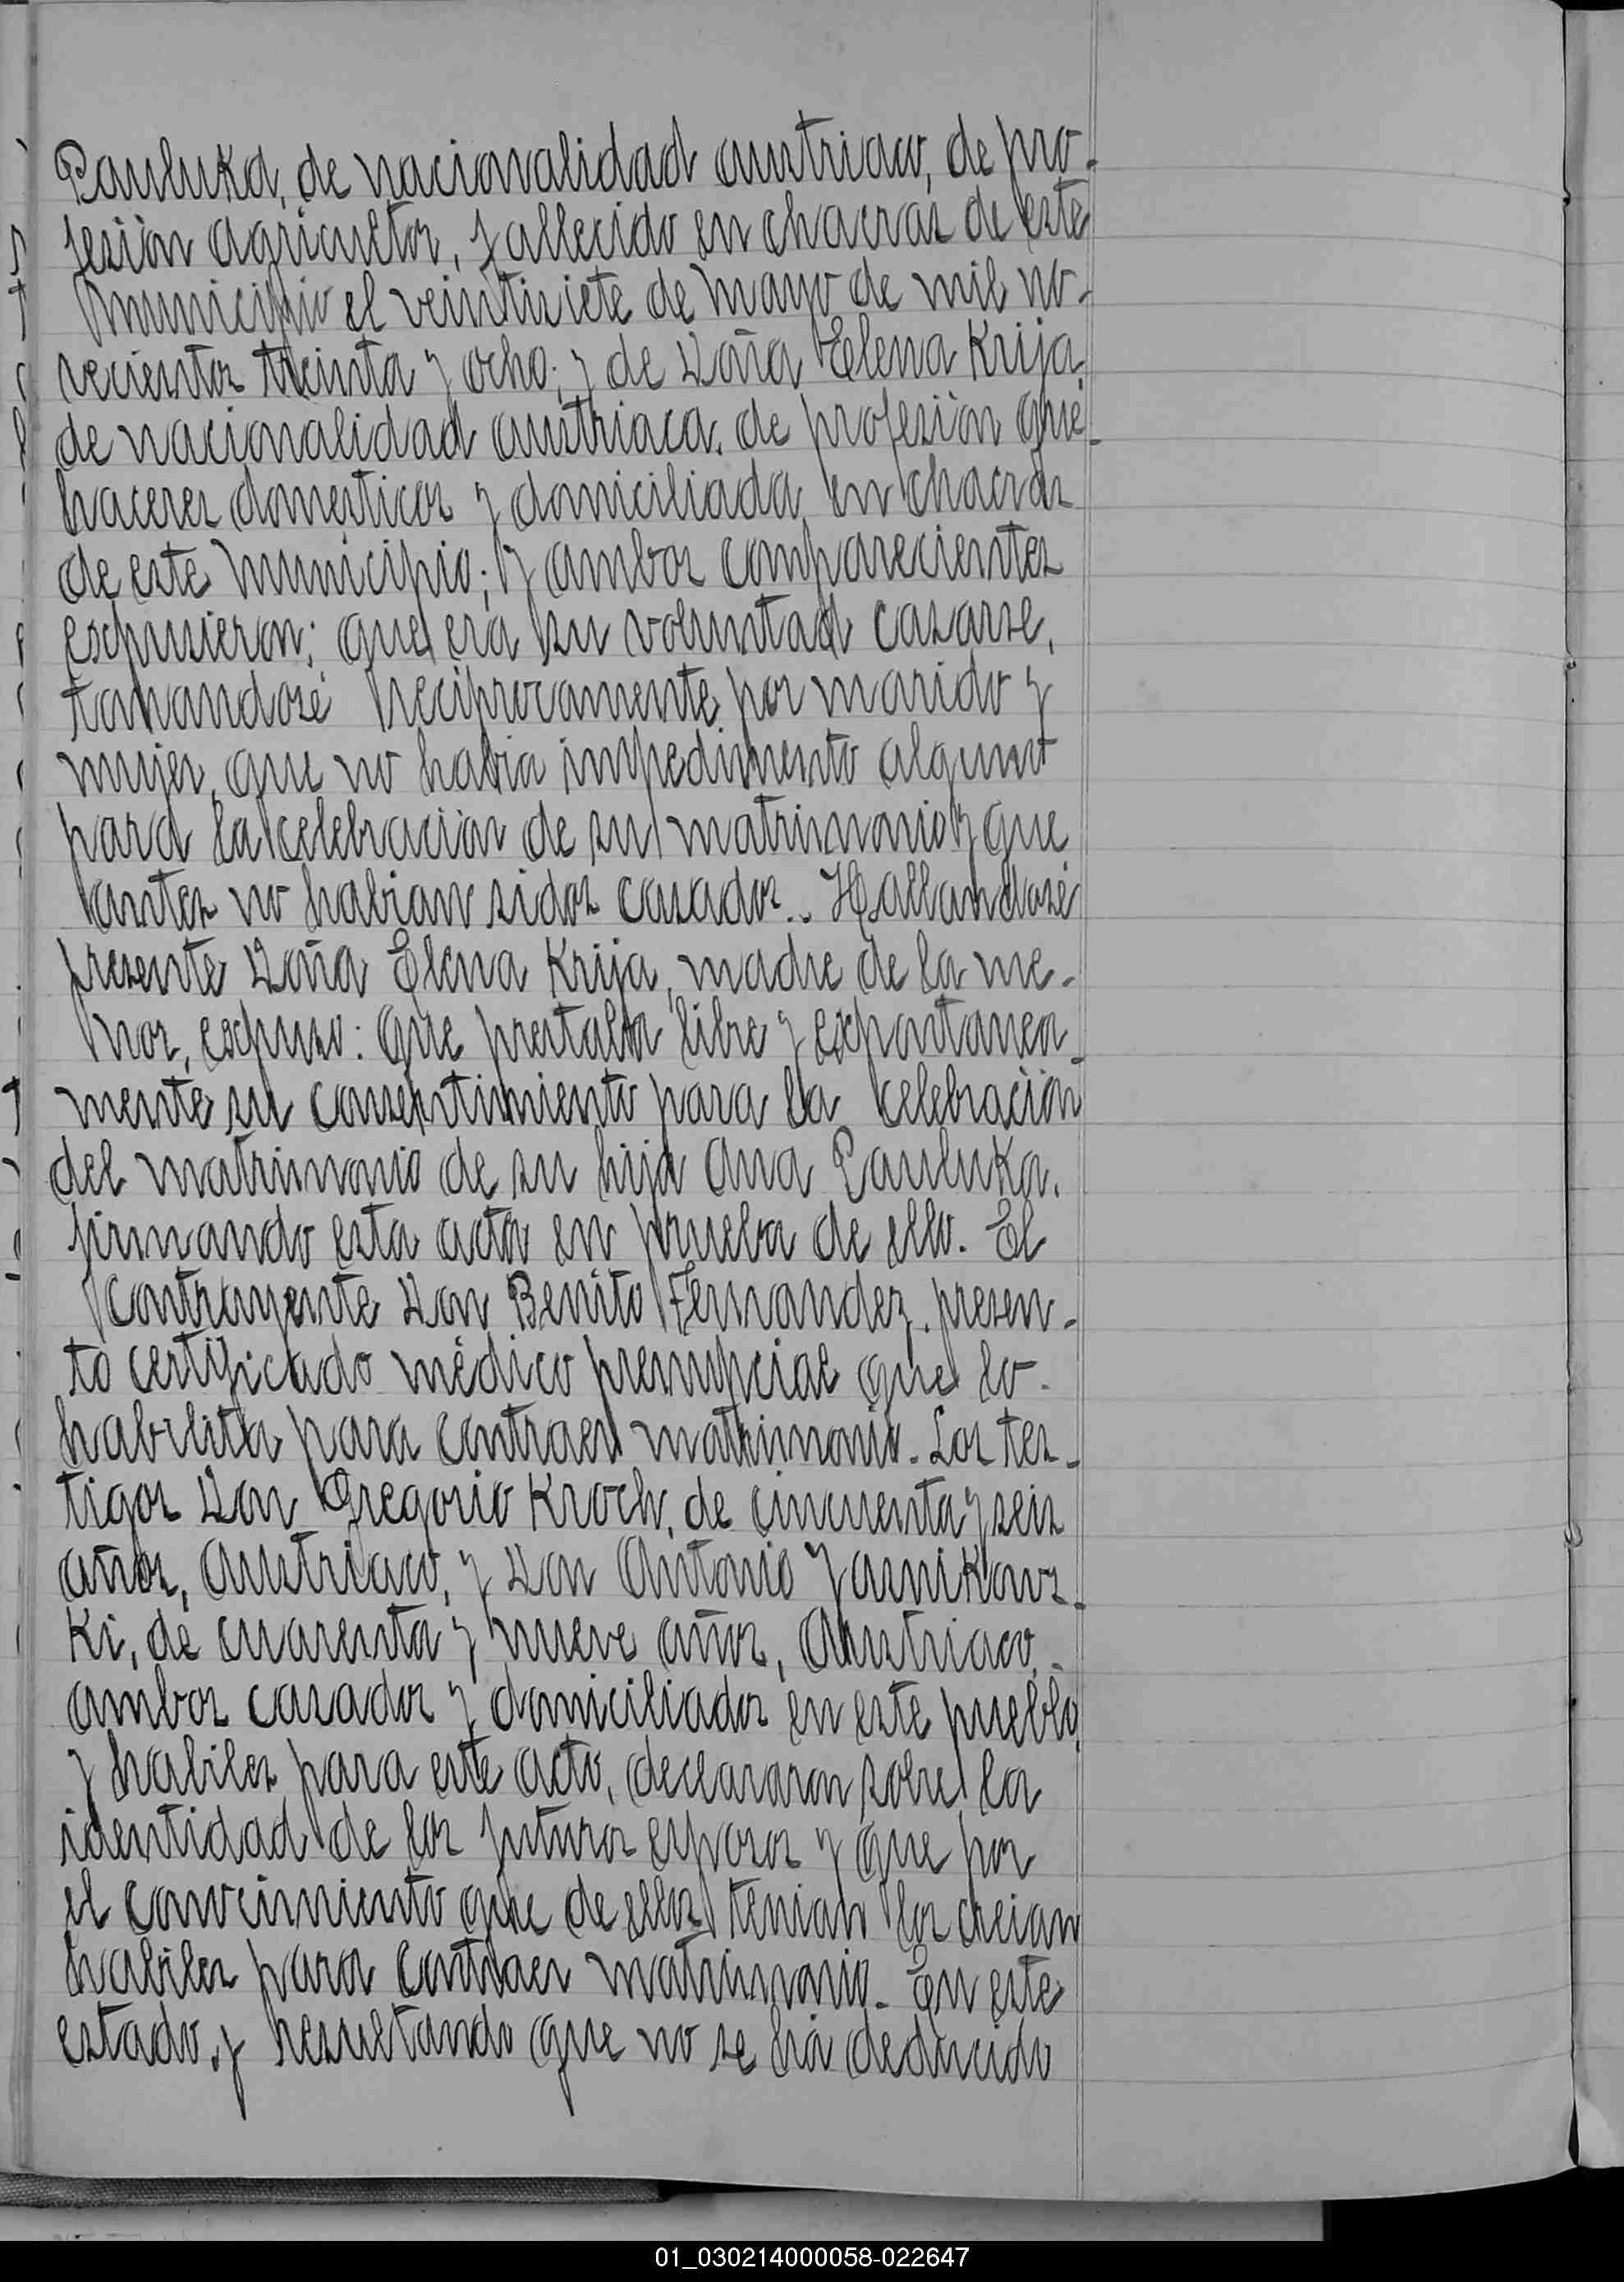 Pauluka, de nacionalidad austriaco, de pro-
fesión agricultor, fallecido en chacras de este
municipio el veintisiete de mayo de mil no-
vecientos treinta y ocho; y de Doña Elena Krija,
de nacionalidad austriaca, de profesión que-
haceres domesticos y domiciliada en chacras
de este municipio; y ambos comparecientes
espusieron: que era su voluntad casarse,
tomandosé reciprocamente por marido y
mujer, que no habia impedimento alguno
para la celebración de su matrimonio y que
antes no habian sidos casados.. Hallandosé
presente Doña Elena Krija, madre de la me-
nor, espuso: que prestaba libre y expontanea-
mente su consentimiento para la celebración
del matrimonio de su hija Ana Pauluka,
firmando esta acta en prueba de ello. El
contrayente Don Benito Fernandez, presen-
to certificado médico prenupcial que lo-
habilita para contraer matrimonio. Los tes-
tigos Don Gregorio Kroch, de cincuenta y seis
años, Austriaco, y Don Antonio Yasnikows-
ki, de cuarenta y nueve años, Austriaco,-
ambos casados y domiciliados en este pueblo
y habiles para este acto, declararon sobre la
identidad de los futuros esposos y que por
el conocimiento que de ellos tenian los creian
habiles para contraer matrimonio. En este
estado, y resultando que no se ha deducido
01_030214000058-022647